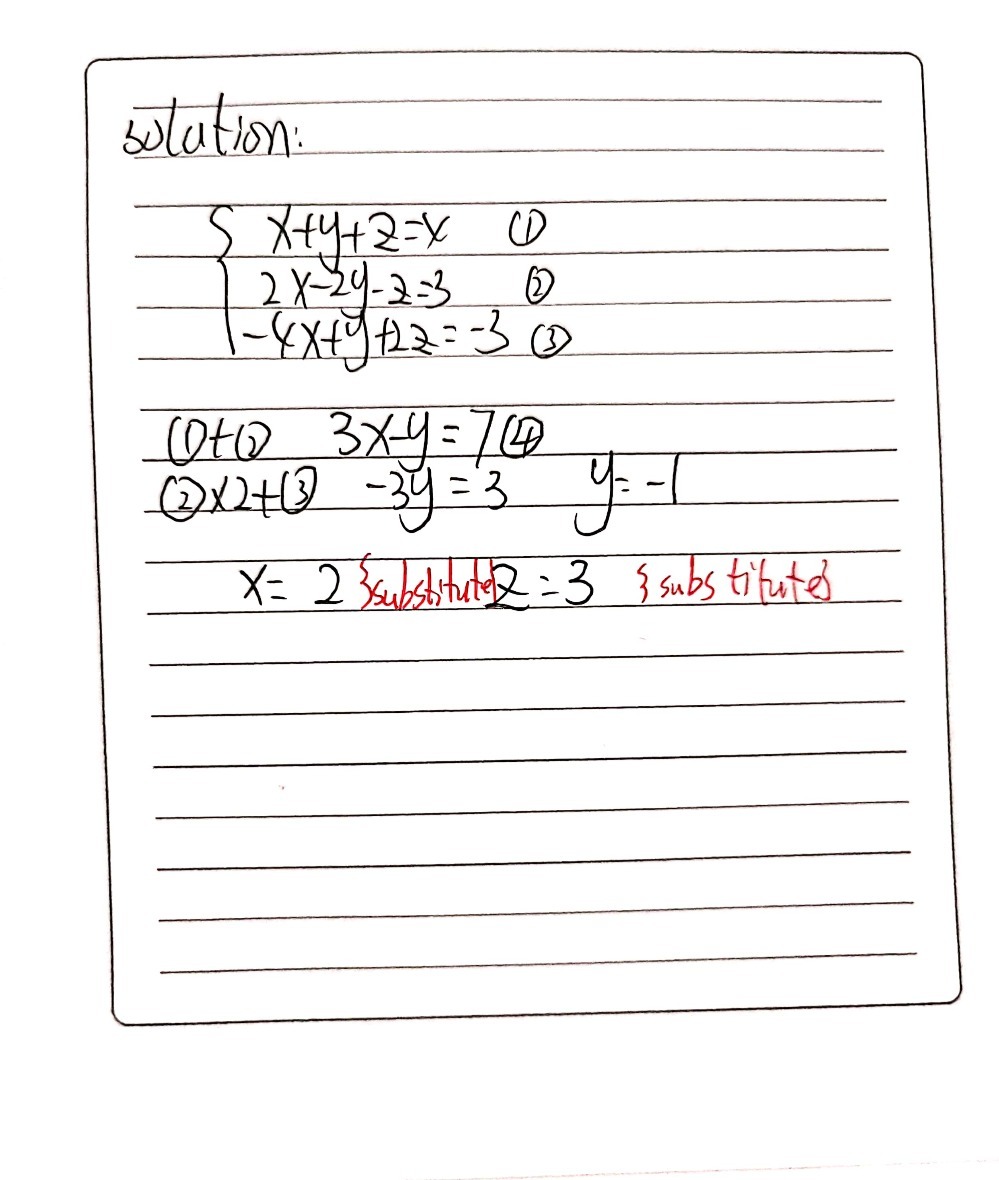 solution:
x+y+z=x ①
2x-2y-z=3 ②
-4x+y+2z=-3 ③
①+② 3x-y=7④
②x2+③ -3y=3 y=-1
x=2 {substitute} z=3 {substitute}